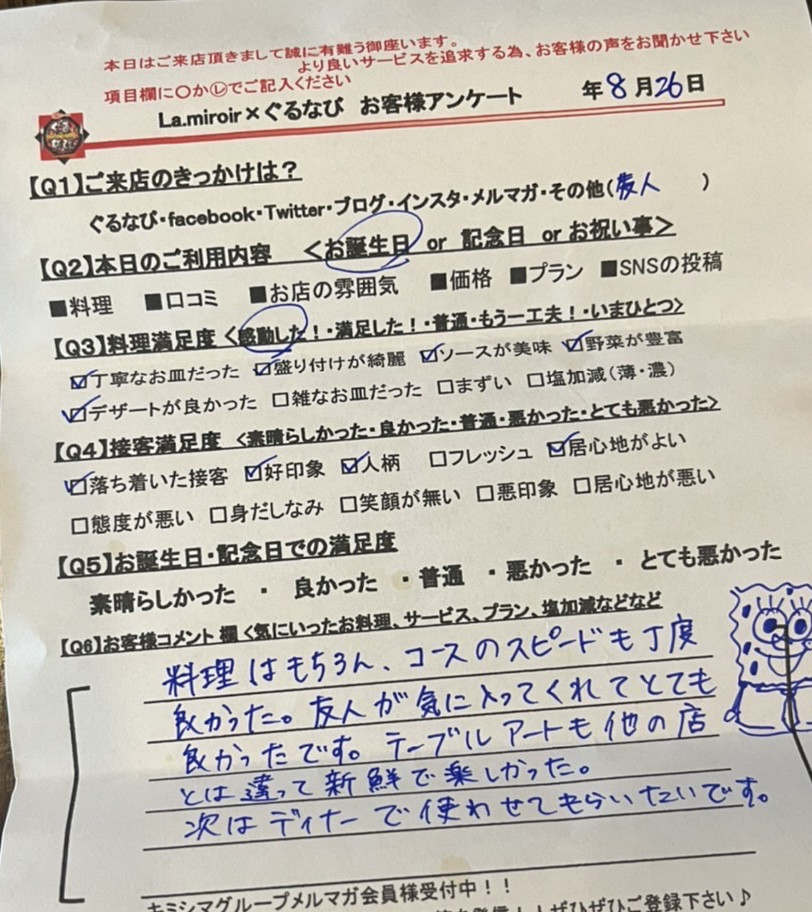 本日はご来店頂きまして誠に有難う御座います。
より良いサービスを追求する為、お客様の声をお聞かせ下さい
項目欄に〇か㋹でご記入ください
La.miroir×ぐるなび お客様アンケート 年8月26日
【Q1】ご来店のきっかけは？
ぐるなび・facebook・Twitter・ブログ・インスタ・メルマガ・その他(友人 )
【Q2】本日のご利用内容 <お誕生日 or 記念日 or お祝い事>
■料理 ■口コミ ■お店の雰囲気 ■価格 ■プラン ■SNSの投稿
【Q3】料理満足度 <感動した！・満足した！・普通・もう一工夫！・いまひとつ>
☑丁寧なお皿だった ☑盛り付けが綺麗 ☑ソースが美味 ☑野菜が豊富
☑デザートが良かった □雑なお皿だった □まずい □塩加減(薄・濃)
【Q4】接客満足度 <素晴らしかった・良かった・普通・悪かった・とても悪かった>
☑落ち着いた接客 ☑好印象 ☑人柄 □フレッシュ ☑居心地がよい
□態度が悪い □身だしなみ □笑顔が無い □悪印象 □居心地が悪い
【Q5】お誕生日・記念日での満足度
素晴らしかった ・ 良かった ・普通 ・悪かった ・ とても悪かった
【Q6】お客様コメント 欄 <気にいったお料理、サービス、プラン、塩加減などなど
料理はもちろん、コースのスピードも丁度
良かった。友人が気に入ってくれてとても
良かったです。テーブルアートも他の店
とは違って新鮮で楽しかった。
次はディナーで使わせてもらいたいです。
キミシマグループメルマガ会員様受付中！！
！ぜひぜひご登録下さい♪